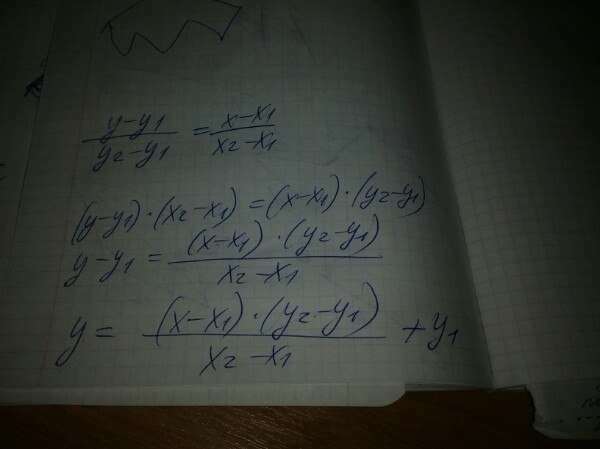 y-y1/y2-y1 = x-x1/x2-x1
(y-y1)·(x2-x1)=(x-x1)·(y2-y1)
y-y1 = (x-x1)·(y2-y1)/x2-x1
y = (x-x1)·(y2-y1)/x2-x1 +y1